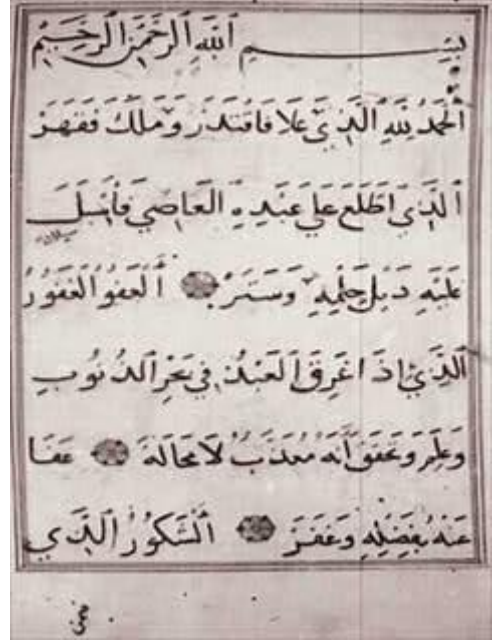 بِسْمِ ٱللَّهِ ٱلرَّحْمَٰنِ ٱلرَّحِيمِ
ٱلْحَمْدُ لِلَّهِ ٱلَّذِي عَلَا فَاقْتَدَرَ وَمَلَكَ فَقَهَرَ
ٱلَّذِي ٱطَّلَعَ عَلَى عَبْدِهِ ٱلْعَاصِي فَأَسْبَلَ
عَلَيْهِ ذَيْلَ حِلْمِهِ وَسَتَرَ ٱلْعَفُوُّ ٱلْغَفُورُ
ٱلَّذِي إِذَا غَرِقَ ٱلْعَبْدُ فِي بَحْرِ ٱلذُّنُوبِ
وَعَلِمَ وَتَحَقَّقَ أَنَّهُ مُعَذَّبٌ لَا مَحَالَةَ عَفَا
عَنْهُ بِفَضْلِهِ وَغَفَرَ ٱلشَّكُورُ ٱلَّذِي